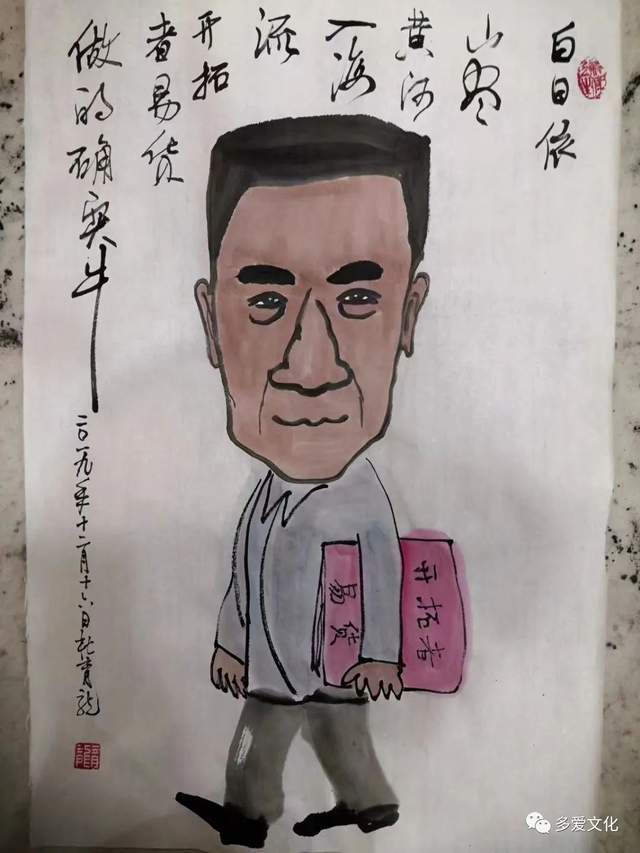 白日依
山尽
黄河
入海
流
开拓
者易货
做的确实牛
二〇一九年十二月十六日杜青龙
易货
开拓者
多爱文化